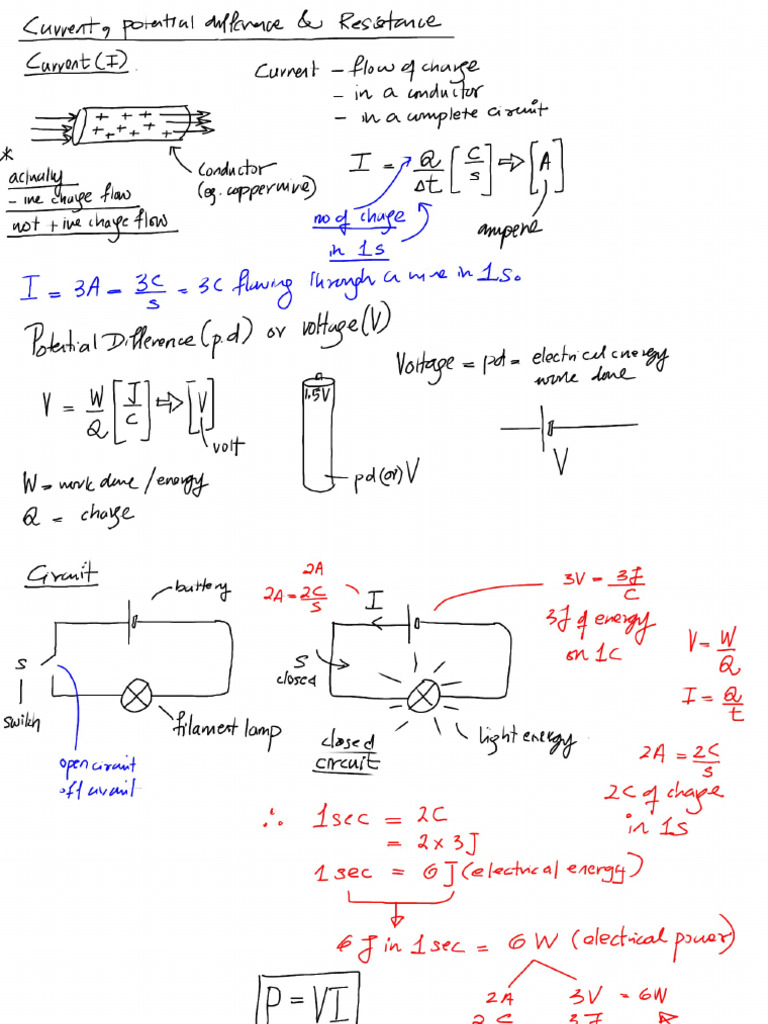 Current, potential difference & Resistance
Current (I)
Current - flow of charge
- in a conductor
- in a complete circuit
+ + + +
+ + + + +
*
actually
-ive charge flow
not +ive charge flow
conductor
(eg. copperwire)
I = Q/Δt [C/s] ⇒ [A]
ampere
no of charge
in 1s
I = 3A = 3C/s = 3C flowing through a wire in 1s.
Potential Difference (p.d) or voltage (V)
Voltage = pd = electrical energy
work done
V = W/Q [J/C] ⇒ [V]
volt
1.5V
pd (or) V
V
W = work done / energy
Q = charge
Circuit
battery
S
switch
filament lamp
open circuit
off circuit
2A
2A = 2C/s
I
S
closed
closed
circuit
light energy
3V = 3J/C
3J of energy
on 1C
V = W/Q
I = Q/t
2A = 2C/s
2C of charge
in 1s
∴ 1sec = 2C
= 2 x 3J
1sec = 6J (electrical energy)
6 J in 1sec = 6W (electrical power)
P = VI
2A 3V = 6W
2C 3J